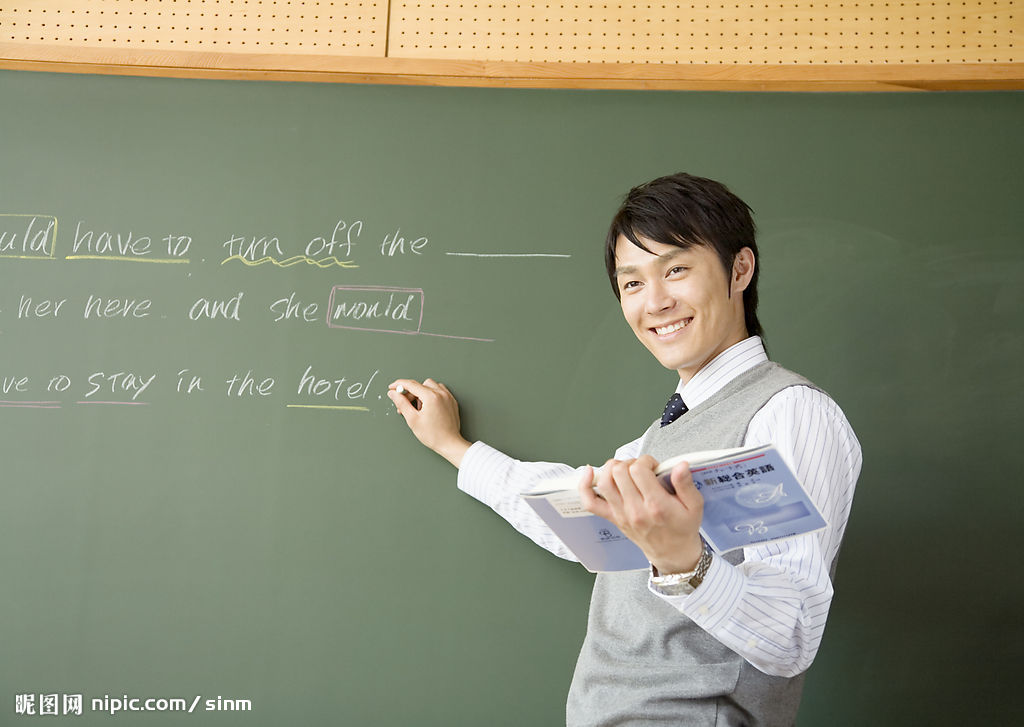 uld have to turn off the
her here. and she would
ve to stay in the hotel.
新総合英語
昵图网 nipic.com/sinm